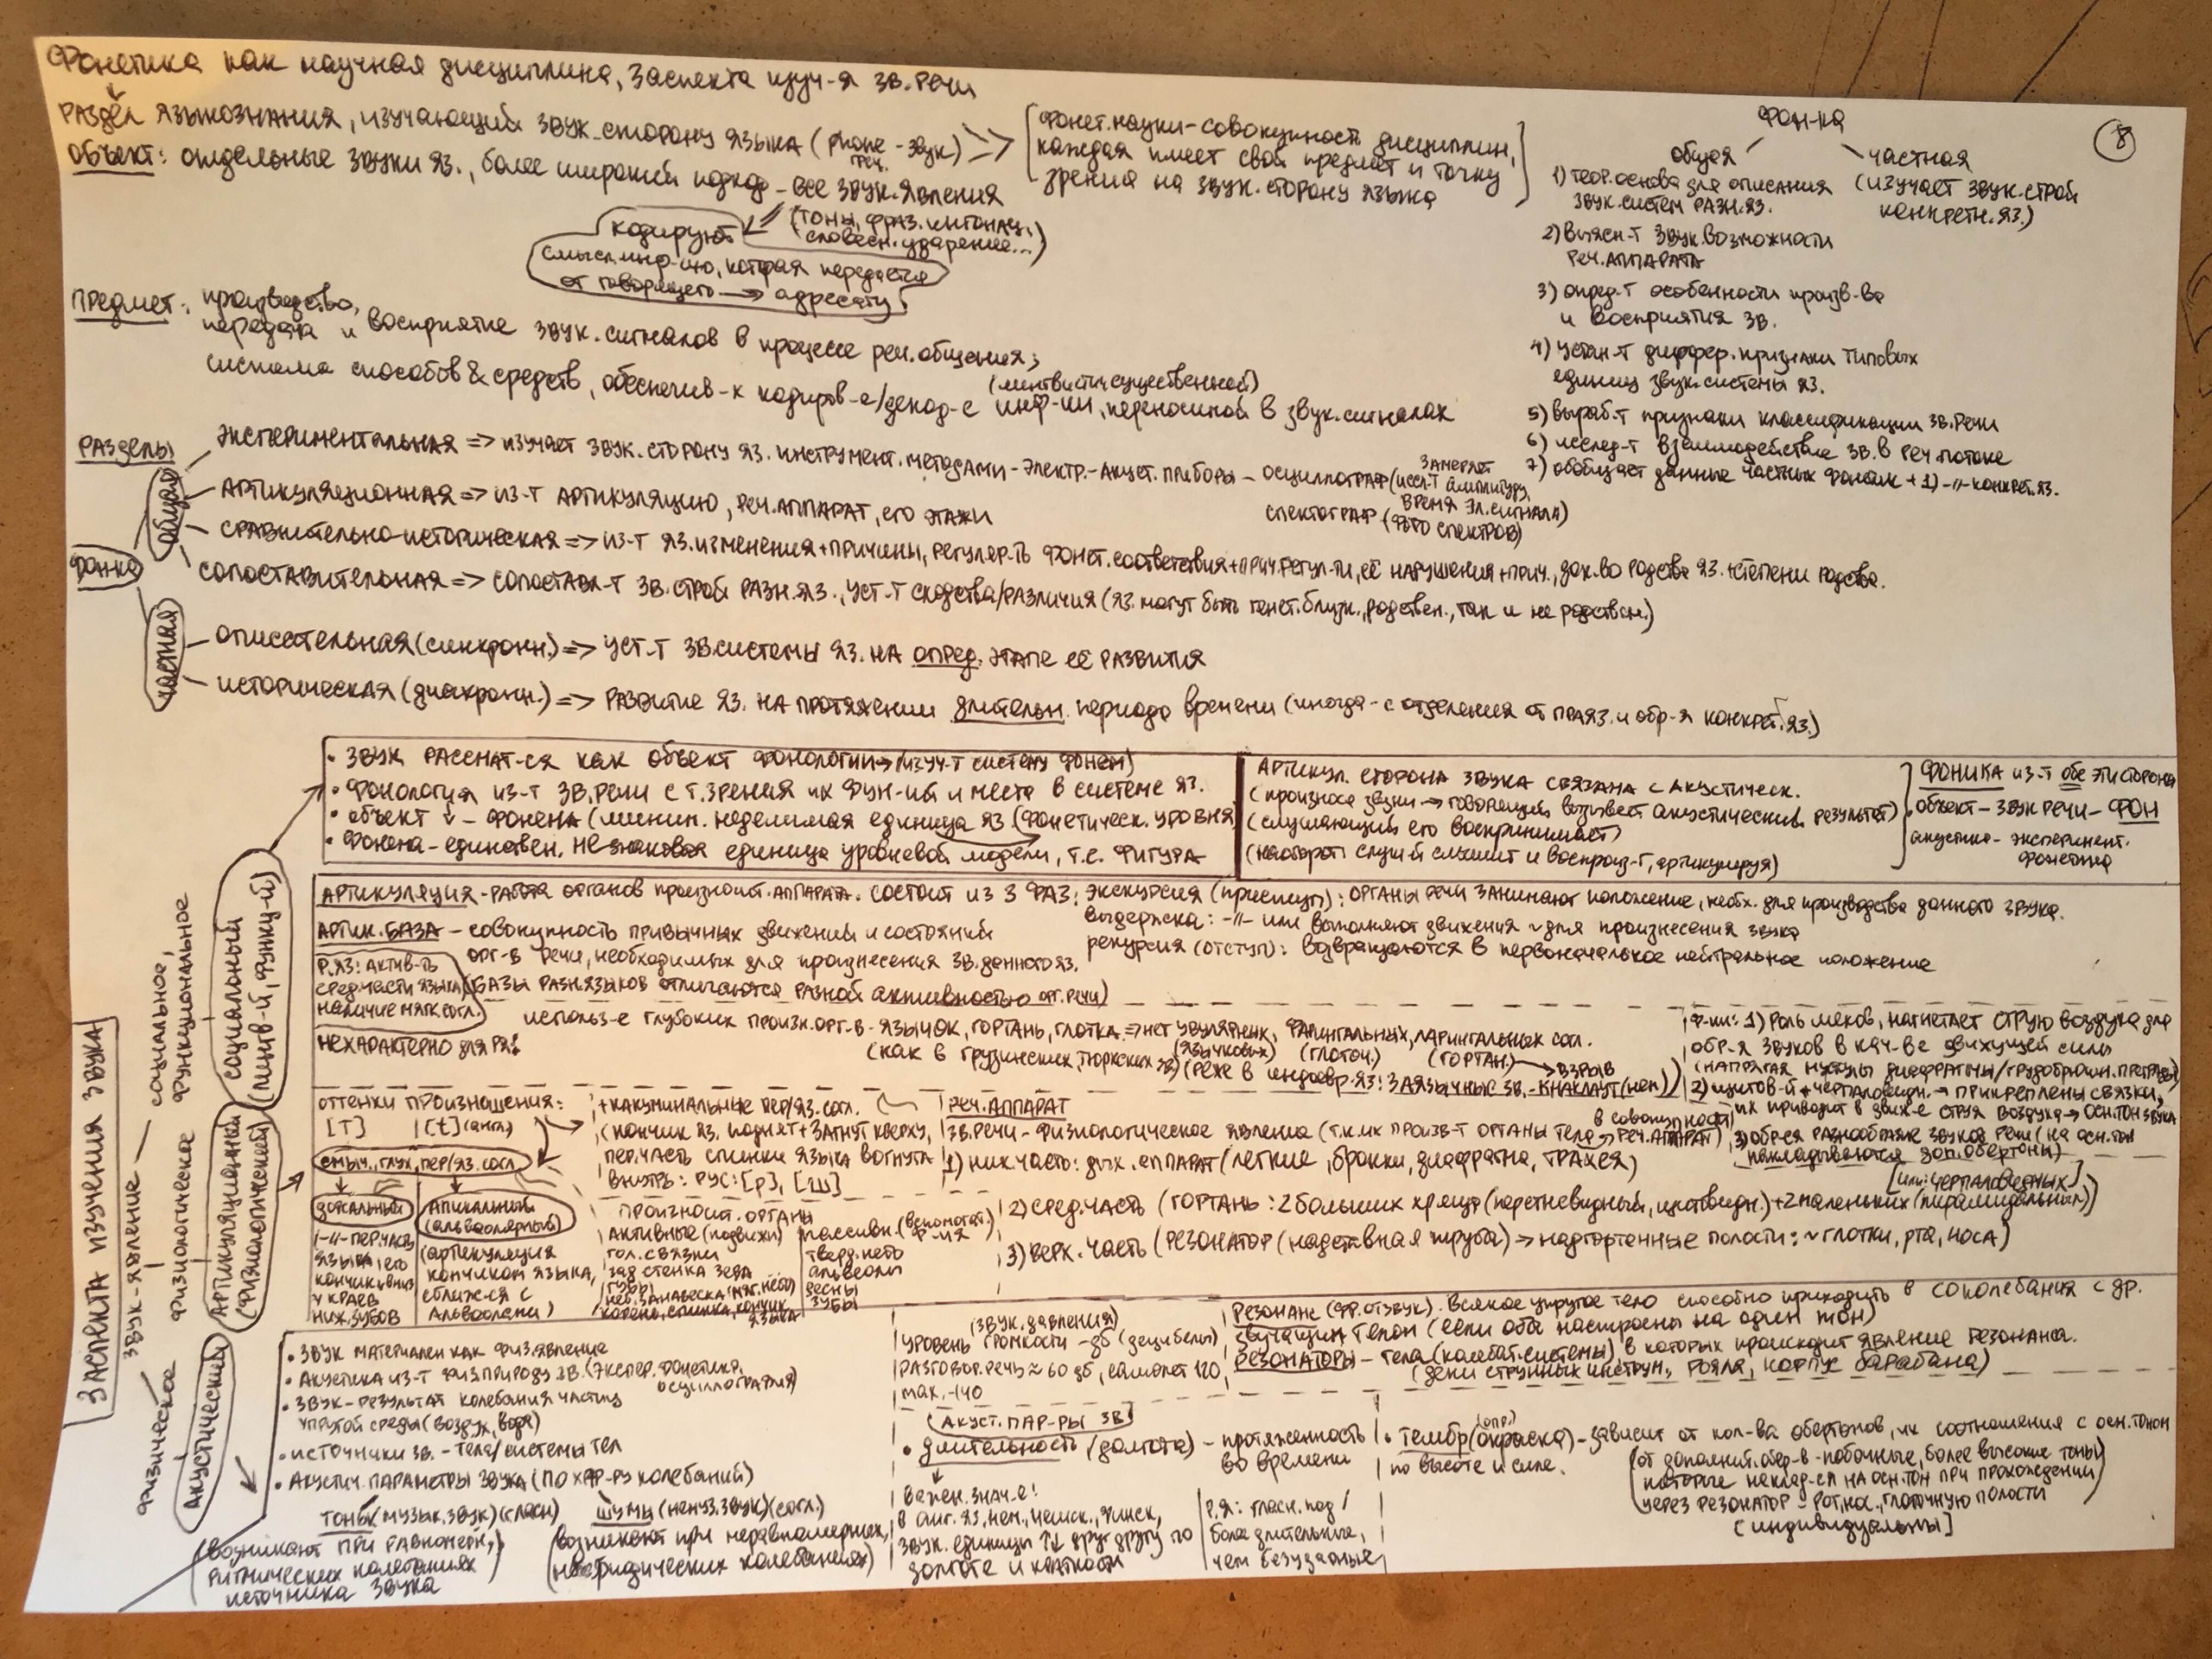 Фонетика как научная дисциплина, 3 аспекта изуч-я зв. речи
8
Раздел языкознания, изучающий звук. сторону языка (phone - звук) =>
греч.
Объект: отдельные звуки яз., более широкий подход - все звук. явления
(тоны, фраз. интонац., словесн. ударение...)
кодируют
смысл. инф-ию, которая передаётся
от говорящего -> адресату
[Фонет. науки - совокупность дисциплин,
каждая имеет свой предмет и точку
зрения на звук. сторону языка]
Фон-ка
общая
частная
(изучает звук. строй
конкретн. яз.)
1) теор. основа для описания
звук. систем разн. яз.
2) выясн-т звук. возможности
реч. аппарата
3) опред-т особенности произв-ва
и восприятия зв.
4) устан-т диффер. признаки типовых
единиц звук. системы яз.
5) выраб-т признаки классификации зв. речи
6) исслед-т взаимодействие зв. в реч. потоке
7) обобщает данные частных фонетик + 1) -//- конкрет. яз.
Предмет: производство,
передача и восприятие звук. сигналов в процессе реч. общения;
система способов & средств, обеспечив-х кодиров-е/декод-е инф-ии, переносимой в звук. сигналах
(лингвистич. существенной)
Разделы
Фон-ка
общая
экспериментальная => изучает звук. сторону яз. инструмент. методами - электр.-акуст. приборы - осциллограф (иссл-т амплитуду,
замеряет
время эл. сигнала)
спектограф (фото спектров)
артикуляционная => из-т артикуляцию, реч. аппарат, его этажи
сравнительно-историческая => из-т яз. изменения + причины, регуляр-ть фонет. соответствия + прич. регул-ти, её нарушения + прич., док-во родства яз. + степени родства.
сопоставительная => сопоставл-т зв. строй разн. яз., уст-т сходства/различия (яз. могут быть генет. близк., родствен., так и не родствен.)
частная
описательная (синхронн.) => уст-т зв. системы яз. на опред. этапе её развития
историческая (диахронн.) => развитие яз. на протяжении длительн. периода времени (иногда - с отделения от праяз. и обр-я конкрет. яз.)
3 аспекта изучения звука
звук - явление — социальное,
функциональное
физиологическое
физическое
социальный
(лингв-й, функц-й)
• Звук рассмат-ся как объект фонологии -> (изуч-т систему фонем)
• Фонология из-т зв. речи с т. зрения их фун-ий и места в системе яз.
• объект ↓ - фонема (миним. неделимая единица яз (фонетическ. уровня)
• Фонема - единствен. незнаковая единица уровневой модели, т.е. фигура
Артикул. сторона звука связана с акустическ.
(произнося звуки -> говорящий вызывает акустический результат)
(слушающий его воспринимает)
(наоборот: слуш-й слышит и воспроиз-т, артикулируя)
Фоника из-т обе эти стороны
объект - звук речи - фон
акустика - эксперимент.
фонетика
артикуляционный
(физиологический)
Артикуляция - работа органов произносит. аппарата. состоит из 3 фаз: экскурсия (приступ): органы речи занимают положение, необх. для производства данного звука.
выдержка: -//- или выполняют движения ~ для произнесения звука
рекурсия (отступ): возвращаются в первоначальное нейтральное положение
Артик. база - совокупность привычных движений и состояний
орг-в речи, необходимых для произнесения зв. данного яз.
(базы разн. языков отличаются разной активностью орг. речи)
Р. яз: актив-ть
сред. части языка,
наличие мягк. согл.
нехарактерно для Ря:
использ-е глубоких произн. орг-в - язычок, гортань, глотка => нет увулярных, фарингальных, ларингальных согл.
(язычковых) (глоточ.) (гортан.) -> взрыв
(как в грузинских, тюркских яз) (реже в индоевр. яз: заязычные зв. - кнаклаут (нем.))
Ф-ии: 1) роль мехов, нагнетает струю воздуха для
обр-я звуков в кач-ве движущей силы
(напрягая мускулы диафрагмы/грудобрюшн. преграды)
2) щитов-й + черпаловидн. -> прикреплены связки,
их приводит в движ-е струя воздуха -> осн. тон звука
3) обр-ся разнообразие звуков речи (на осн. тон
накладываются доп. обертоны)
оттенки произношения:
[т] | [t] (англ)
смыч., глух., пер/яз. согл.
дорсальный
-//- пер. часть
языка, его
кончик вниз
у краёв
ниж. зубов
апикальный
(альвеолярный)
(артикуляция
кончиком языка,
сближ-ся с
альвеолами)
+ какуминальные пер/яз. согл.
(кончик яз. поднят + загнут кверху,
пер. часть спинки языка вогнута
внутрь: рус: [р], [ш]
произносит. органы
активные (подвижн)
гол. связки
зад. стенка зева
губы
нёб. занавеска (мяг. нёбо)
корень, спинка, кончик
языка
пассивн. (вспомогат.)
ф-ия
твёрд. нёбо
альвеолы
дёсны
зубы
реч. аппарат
зв. речи - физиологическое явление (т.к. их произв-т органы тела => реч. аппарат)
в совокупности
1) ниж. часть: дых. аппарат (лёгкие, бронхи, диафрагма, трахея)
2) сред. часть (гортань: 2 больших хряща (перстневидный, щитовидн.) + 2 маленьких (пирамидальных))
[или: черпаловидных]
3) верх. часть (резонатор (надставная труба) -> надгортанные полости: ~ глотки, рта, носа)
акустический
• Звук материален как физ. явление
• Акустика из-т физ. природу зв. (экспер. фонетика,
осциллография)
• Звук - результат колебания частиц
упругой среды (воздух, вода)
• источники зв. - тела/системы тел
• Акустич. параметры звука (по хар-ру колебаний)
тоны (музык. звук) (гласн)
(возникают при равномерн.,
ритмических колебаниях
источника звука
шумы (немуз. звук) (согл.)
(возникают при неравномерных,
неритмических колебаниях)
(звук. давления)
уровень громкости - дб (децибелы)
разговор. речь ≈ 60 дб, самолёт 120,
max. - 140
Резонанс (фр. отзвук). Всякое упругое тело способно приходить в соколебания с др.
звучащим телом (если оба настроены на один тон)
Резонаторы - тела (колебат. системы) в которых происходит явление резонанса.
(деки струнных инструм., рояля, корпус барабана)
(Акуст. пар-ры зв)
• длительность (долгота) - протяжённость
во времени
важн. знач-е!
в анг. яз, нем., чешск., финск,
звук. единицы ↑↓ друг другу по
долготе и краткости
Р.я: гласн. под /
более длительные,
чем безударные
• тембр (окраска) - зависит от кол-ва обертонов, их соотношения с осн. тоном
по высоте и силе.
(от дополнит. обер-в - побочные, более высокие тоны
которые наклад-ся на осн. тон при прохождении
через резонатор - рот, нос., глоточную полости
[индивидуальны]